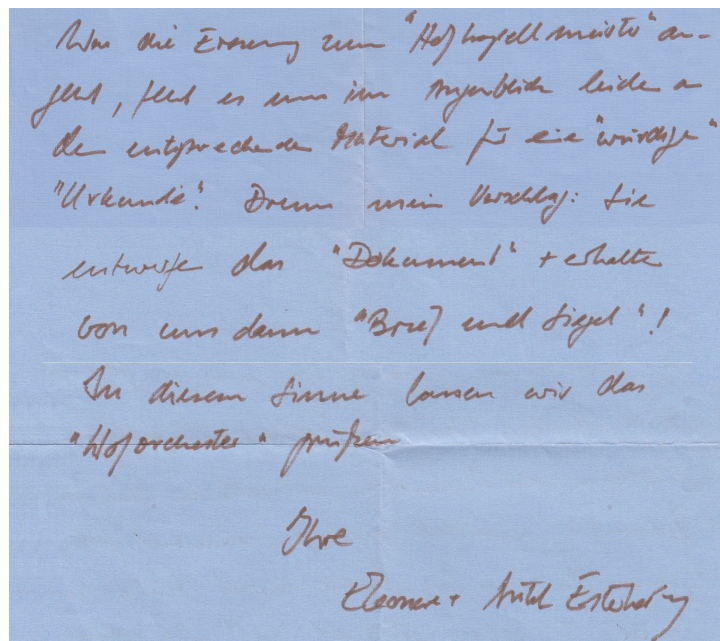 Was die Ernennung zum "Hofkapellmeister" an-
geht, fehlt es uns im Augenblick leider an
dem entsprechenden Material für eine "würdige"
"Urkunde". Drum mein Vorschlag: Sie
entwerfen das "Dokument" + erhalten
von uns dann "Brief und Siegel"!
In diesem Sinne lassen wir das
"Hoforchester" grüßen
Ihre
Eleonore + Esterházy